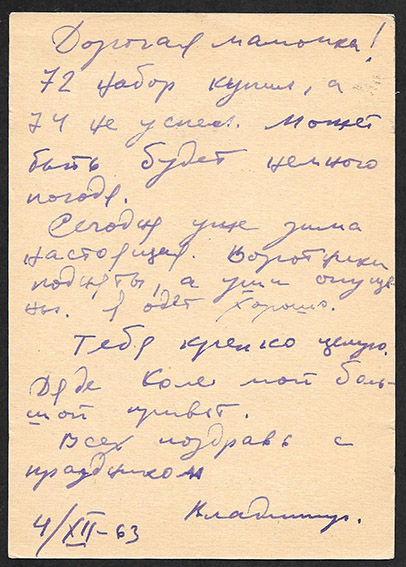 Дорогая мамочка!
72 набор купил, а
74 не успел. Может
быть будет немного
погодя.
Сегодня уже зима
настоящая. Воротники
подняты, а уши опуще
ны. Я одет хорошо.
Тебя крепко целую.
Дяде Коле мой боль-
шой привет.
Всех поздравь с
праздником
Владимир.
4/XII-63